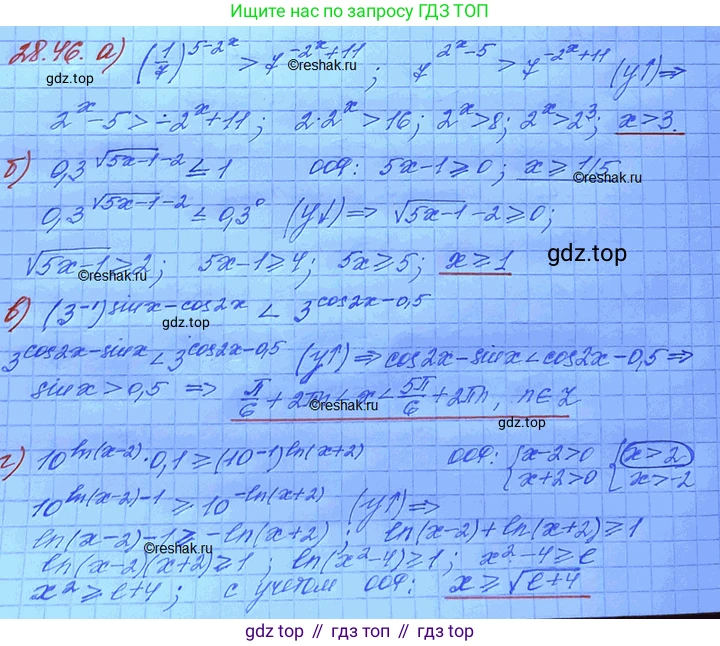 Ищите нас по запросу ГДЗ ТОП
28.46. а) (1/7)^(5-2^x) > 7^(-2^x+11); 7^(2^x-5) > 7^(-2^x+11) (y↑) ⇒
©reshak.ru
gdz.top
2^x - 5 > -2^x + 11; 2·2^x > 16; 2^x > 8; 2^x > 2^3; x > 3.
б) 0,3^(√(5x-1)-2) ≤ 1 ООФ: 5x-1 ≥ 0; x ≥ 1/5
©reshak.ru
0,3^(√(5x-1)-2) ≤ 0,3^0 (y↓) ⇒ √(5x-1) - 2 ≥ 0;
gdz.top
√(5x-1) ≥ 2; 5x-1 ≥ 4; 5x ≥ 5; x ≥ 1
©reshak.ru
в) (3^(-1))^(sinx-cos2x) < 3^(cos2x-0,5)
gdz.top
3^(cos2x-sinx) < 3^(cos2x-0,5) (y↑) ⇒ cos2x - sinx < cos2x - 0,5 ⇒
sinx > 0,5 ⇒ π/6 + 2πn < x < 5π/6 + 2πn, n∈Z
©reshak.ru
gdz.top
г) 10^(ln(x-2)) · 0,1 ≥ (10^(-1))^(ln(x+2)) ООФ: { x-2>0 { x>2
x+2>0 x>-2
10^(ln(x-2)-1) ≥ 10^(-ln(x+2)) (y↑) ⇒
ln(x-2) - 1 ≥ -ln(x+2); ln(x-2) + ln(x+2) ≥ 1
©reshak.ru
ln(x-2)(x+2) ≥ 1; ln(x²-4) ≥ 1; x²-4 ≥ e
x² ≥ e+4; с учетом ООФ: x ≥ √(e+4)
gdz.top // гдз топ // gdz.top